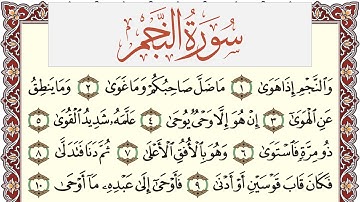 سُورَةُ النَّجْمِ
وَالنَّجْمِ إِذَا هَوَىٰ ١ مَا ضَلَّ صَاحِبُكُمْ وَمَا غَوَىٰ ٢ وَمَا يَنطِقُ
عَنِ الْهَوَىٰ ٣ إِنْ هُوَ إِلَّا وَحْيٌ يُوحَىٰ ٤ عَلَّمَهُ شَدِيدُ الْقُوَىٰ ٥
ذُو مِرَّةٍ فَاسْتَوَىٰ ٦ وَهُوَ بِالْأُفُقِ الْأَعْلَىٰ ٧ ثُمَّ دَنَا فَتَدَلَّىٰ ٨
فَكَانَ قَابَ قَوْسَيْنِ أَوْ أَدْنَىٰ ٩ فَأَوْحَىٰ إِلَىٰ عَبْدِهِ مَا أَوْحَىٰ ١٠